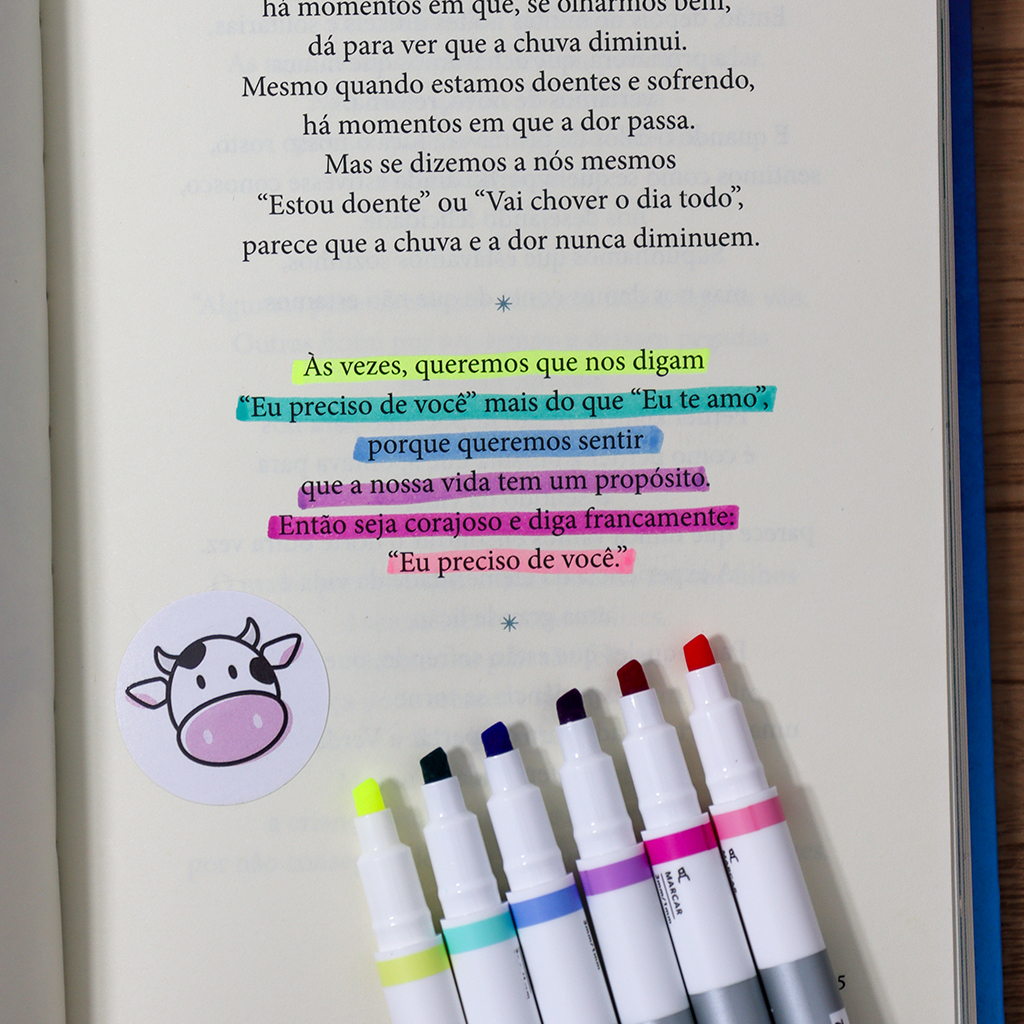 há momentos em que, se olharmos bem,
dá para ver que a chuva diminui.
Mesmo quando estamos doentes e sofrendo,
há momentos em que a dor passa.
Mas se dizemos a nós mesmos
“Estou doente” ou “Vai chover o dia todo”,
parece que a chuva e a dor nunca diminuem.
Às vezes, queremos que nos digam
“Eu preciso de você” mais do que “Eu te amo”,
porque queremos sentir
que a nossa vida tem um propósito.
Então seja corajoso e diga francamente:
“Eu preciso de você.”
MARCAR
5